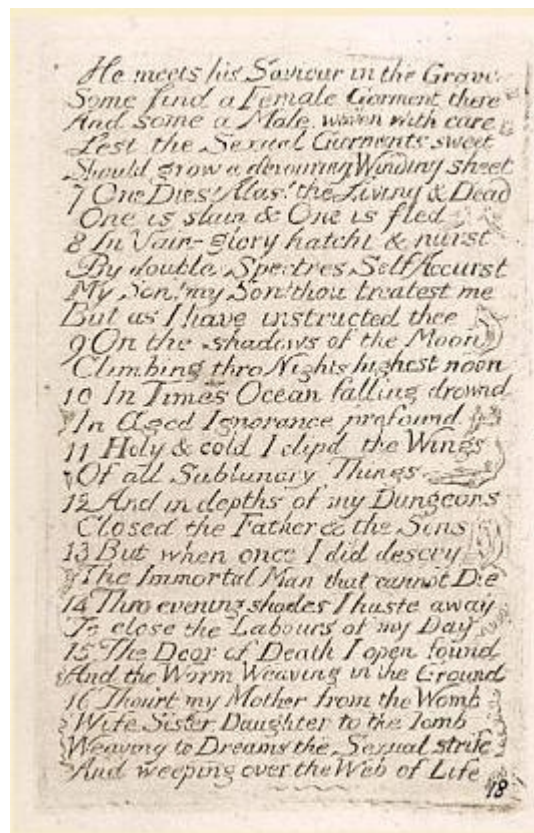 He meets his Saviour in the Grave
Some find a Female Garment there
And some a Male, woven with care
Lest the Sexual Garments sweet
Should grow a devouring Winding sheet
7 One Dies! Alas! the Living & Dead
One is slain & One is fled
8 In Vain-glory hatcht & nurst
By double Spectres Self Accurst
My Son! my Son! thou treatest me
But as I have instructed thee
9 On the shadows of the Moon
Climbing thro Nights highest noon
10 In Times Ocean falling drownd
In Aged Ignorance profound
11 Holy & cold I clipd the Wings
Of all Sublunary Things
12 And in depths of my Dungeons
Closed the Father & the Sons
13 But when once I did descry
The Immortal Man that cannot Die
14 Thro evening shades I haste away
To close the Labours of my Day
15 The Door of Death I open found
And the Worm Weaving in the Ground
16 Thou'rt my Mother from the Womb
Wife Sister Daughter to the Tomb
Weaving to Dreams the Sexual strife
And weeping over the Web of Life
18